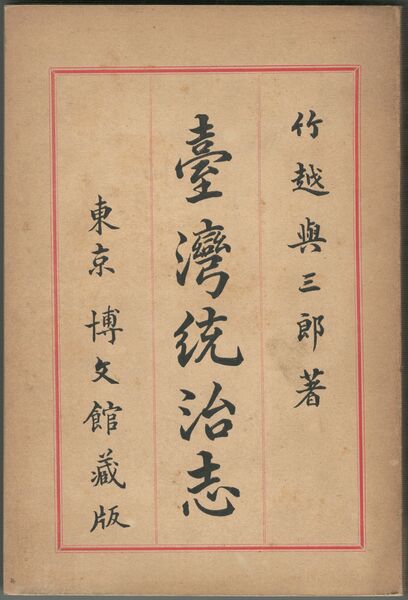 竹越與三郎著
臺灣統治志
東京 博文館藏版